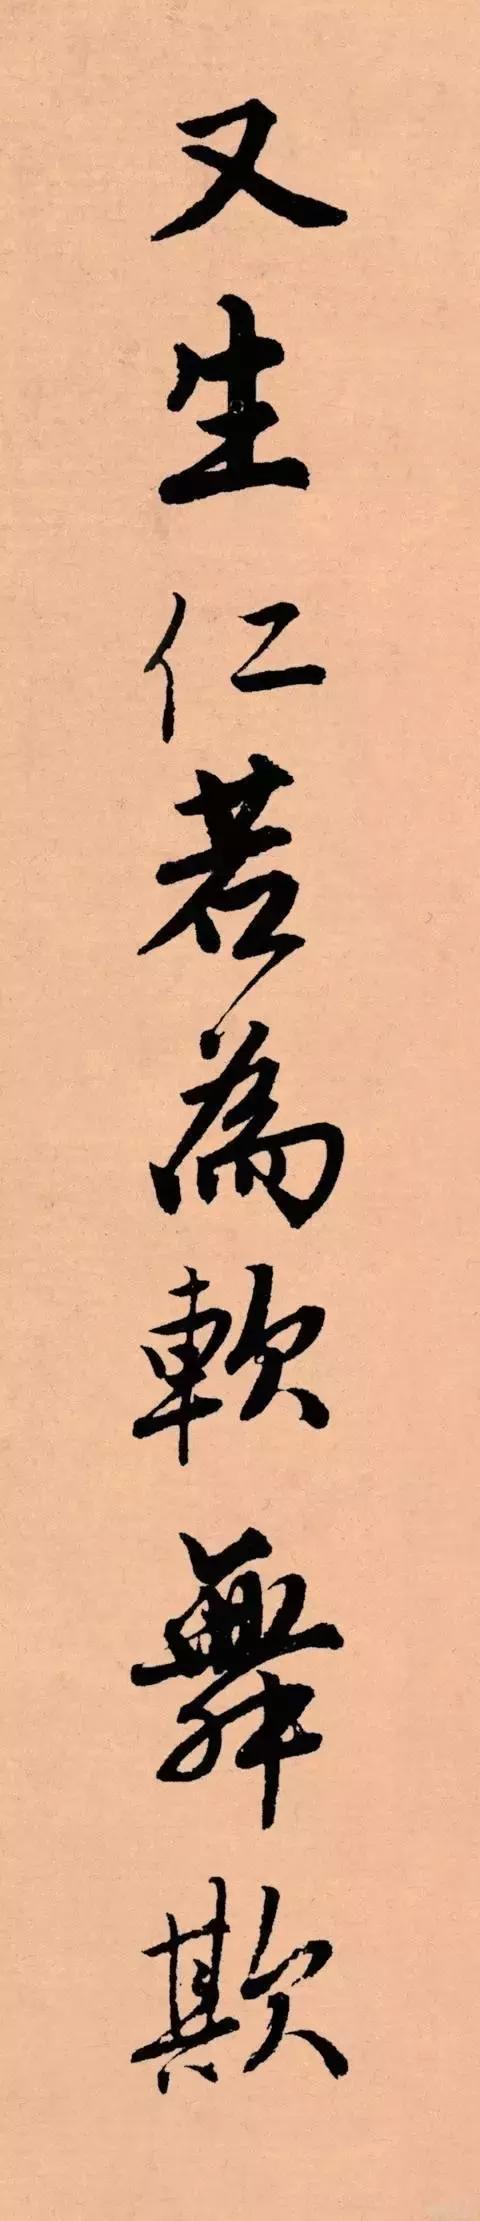 又生仁若為軟舞欺